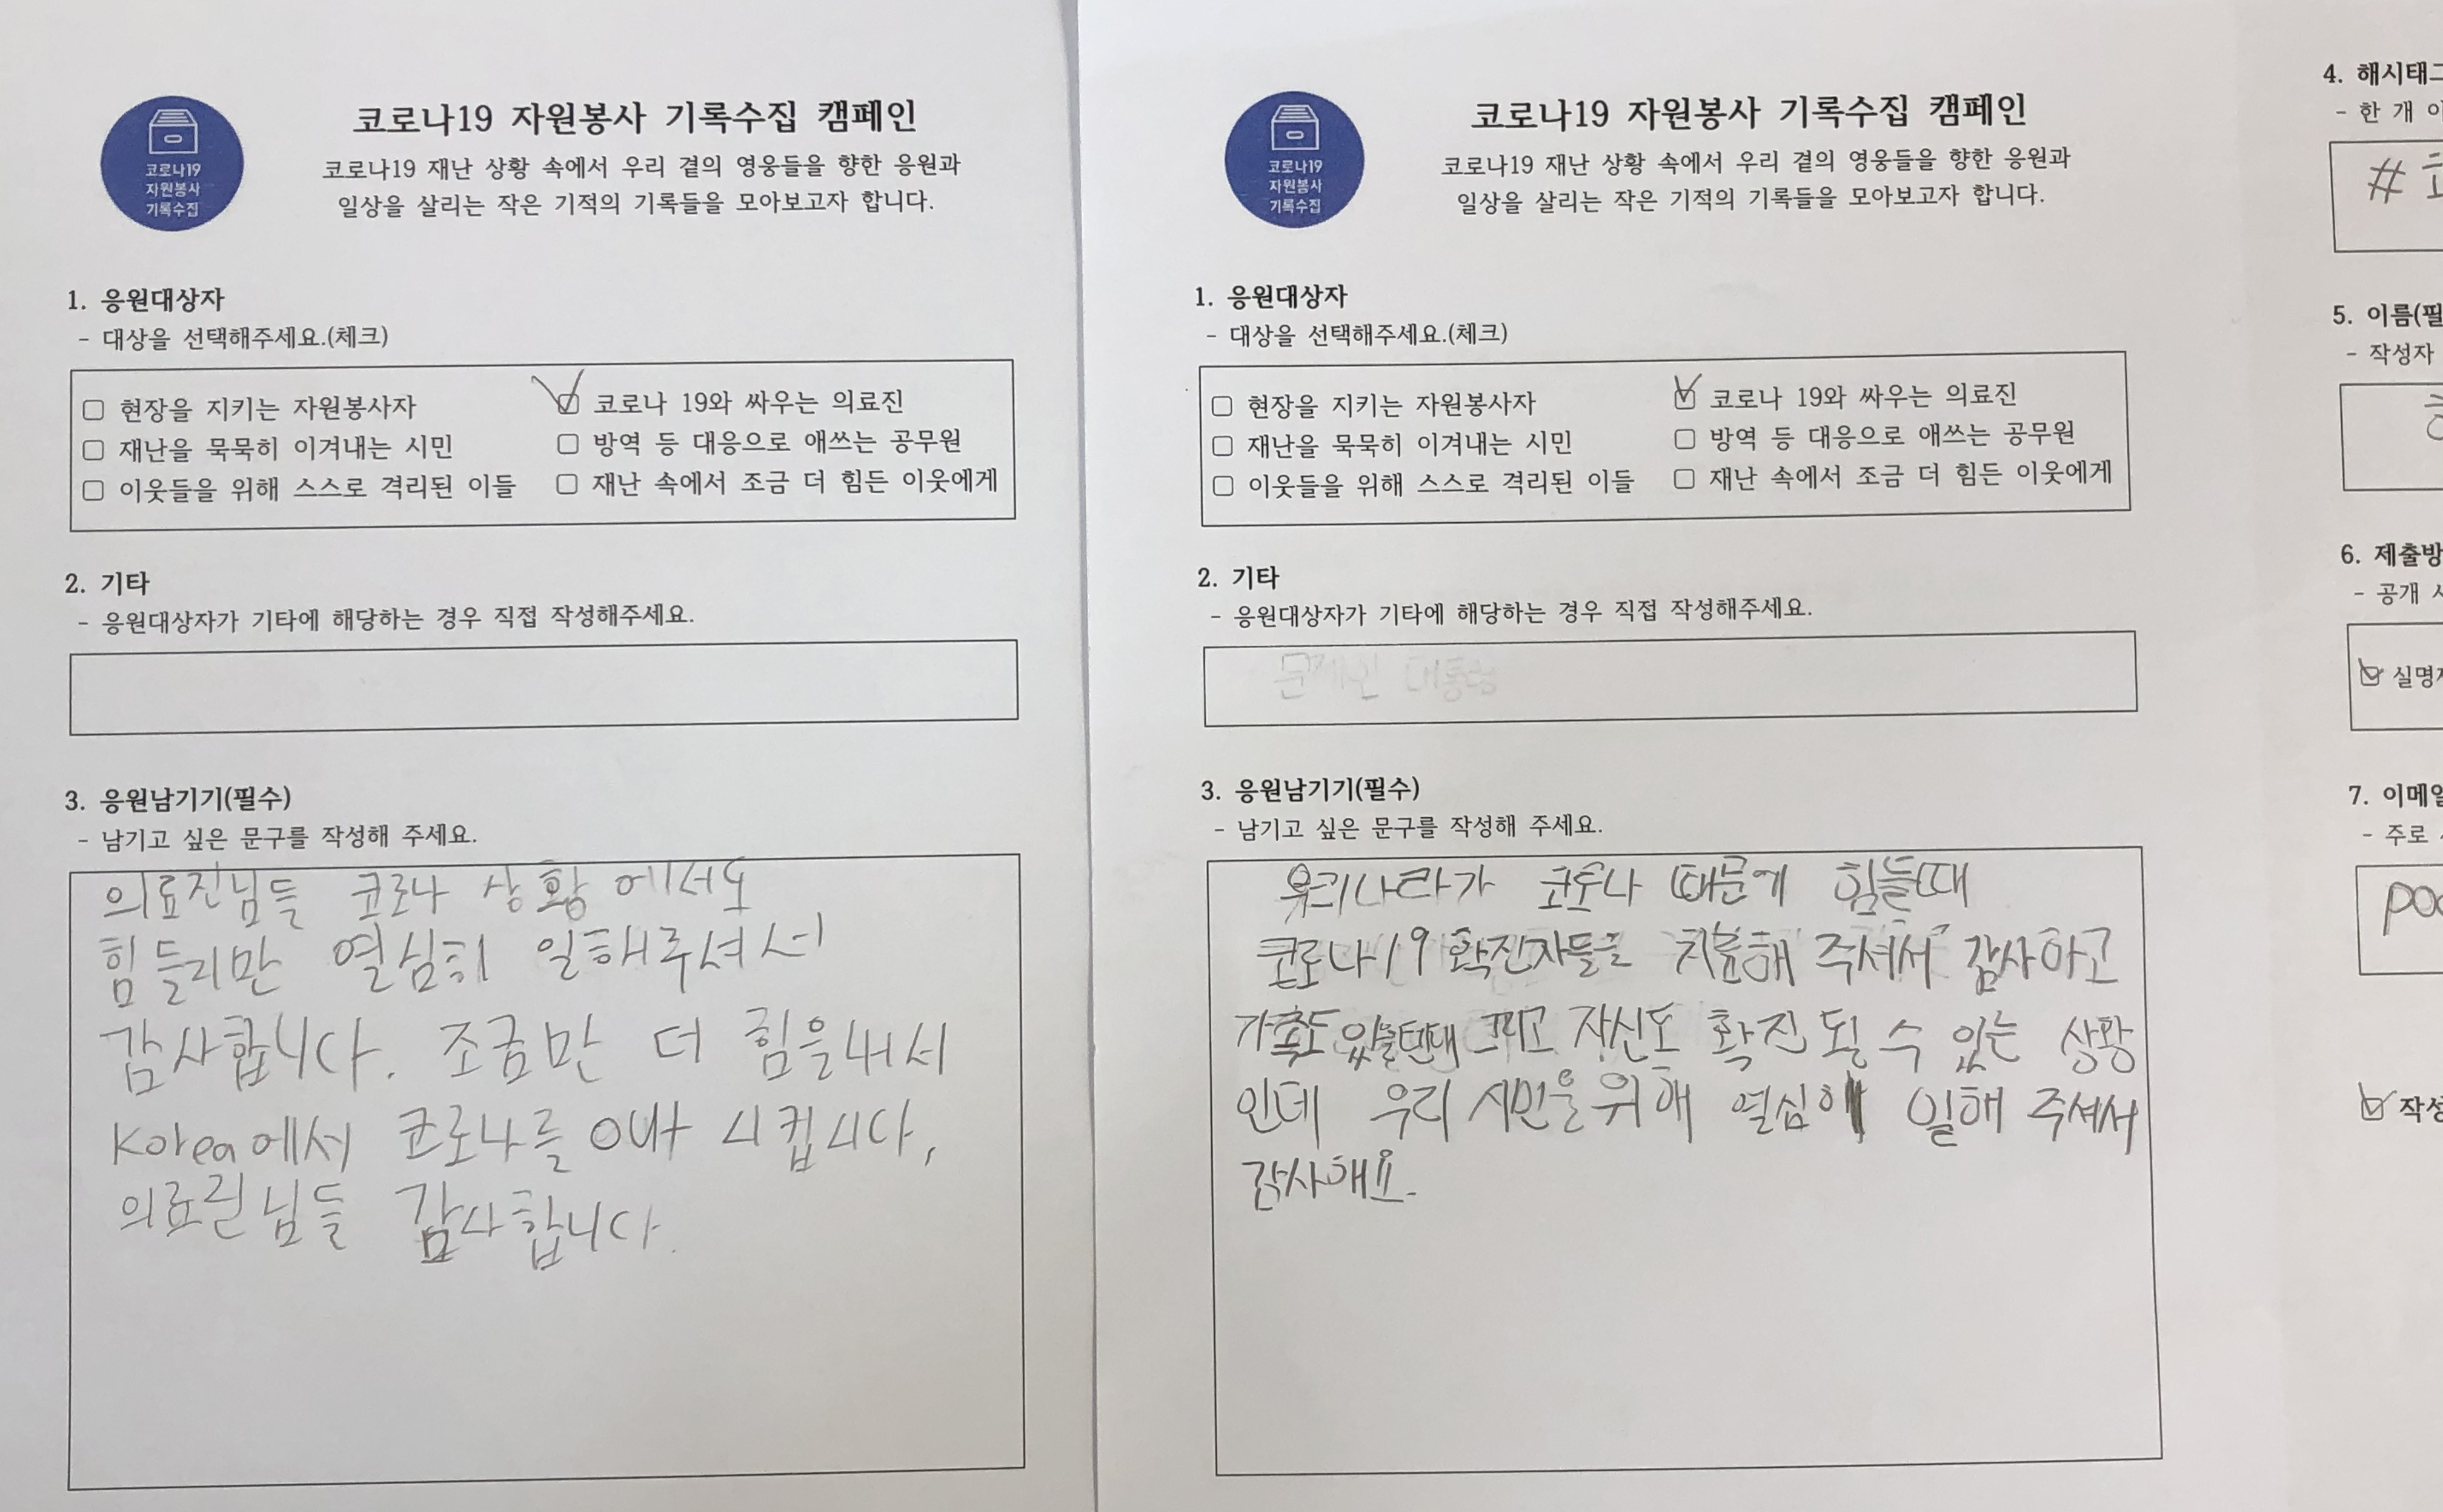 코로나19
자원봉사
기록수집
코로나19 자원봉사 기록수집 캠페인
코로나19 재난 상황 속에서 우리 곁의 영웅들을 향한 응원과
일상을 살리는 작은 기적의 기록들을 모아보고자 합니다.
1. 응원대상자
- 대상을 선택해주세요.(체크)
현장을 지키는 자원봉사자
코로나 19와 싸우는 의료진
재난을 묵묵히 이겨내는 시민
방역 등 대응으로 애쓰는 공무원
이웃들을 위해 스스로 격리된 이들
재난 속에서 조금 더 힘든 이웃에게
2. 기타
- 응원대상자가 기타에 해당하는 경우 직접 작성해주세요.
3. 응원남기기(필수)
- 남기고 싶은 문구를 작성해 주세요.
의료진님들 코로나 상황 에서도
힘들지만 열심히 일해주셔서
감사합니다. 조금만 더 힘을내서
Korea에서 코로나를 out 시킵시다,
의료진님들 감사합니다.
코로나19
자원봉사
기록수집
코로나19 자원봉사 기록수집 캠페인
코로나19 재난 상황 속에서 우리 곁의 영웅들을 향한 응원과
일상을 살리는 작은 기적의 기록들을 모아보고자 합니다.
1. 응원대상자
- 대상을 선택해주세요.(체크)
현장을 지키는 자원봉사자
코로나 19와 싸우는 의료진
재난을 묵묵히 이겨내는 시민
방역 등 대응으로 애쓰는 공무원
이웃들을 위해 스스로 격리된 이들
재난 속에서 조금 더 힘든 이웃에게
2. 기타
- 응원대상자가 기타에 해당하는 경우 직접 작성해주세요.
문제인 대통령
3. 응원남기기(필수)
- 남기고 싶은 문구를 작성해 주세요.
우리나라가 코로나 때문에 힘들때
코로나19 확진자들을 치료해 주셔서 감사하고
가족도 있을텐데 그리고 자신도 확진 될 수 있는 상황
인데 우리 시민을 위해 열심히 일해 주셔서
감사해요.
4. 해시태그
- 한 개
#
5. 이름(필
- 작성자
6. 제출방
- 공개
실명
7. 이메일
- 주로
작성